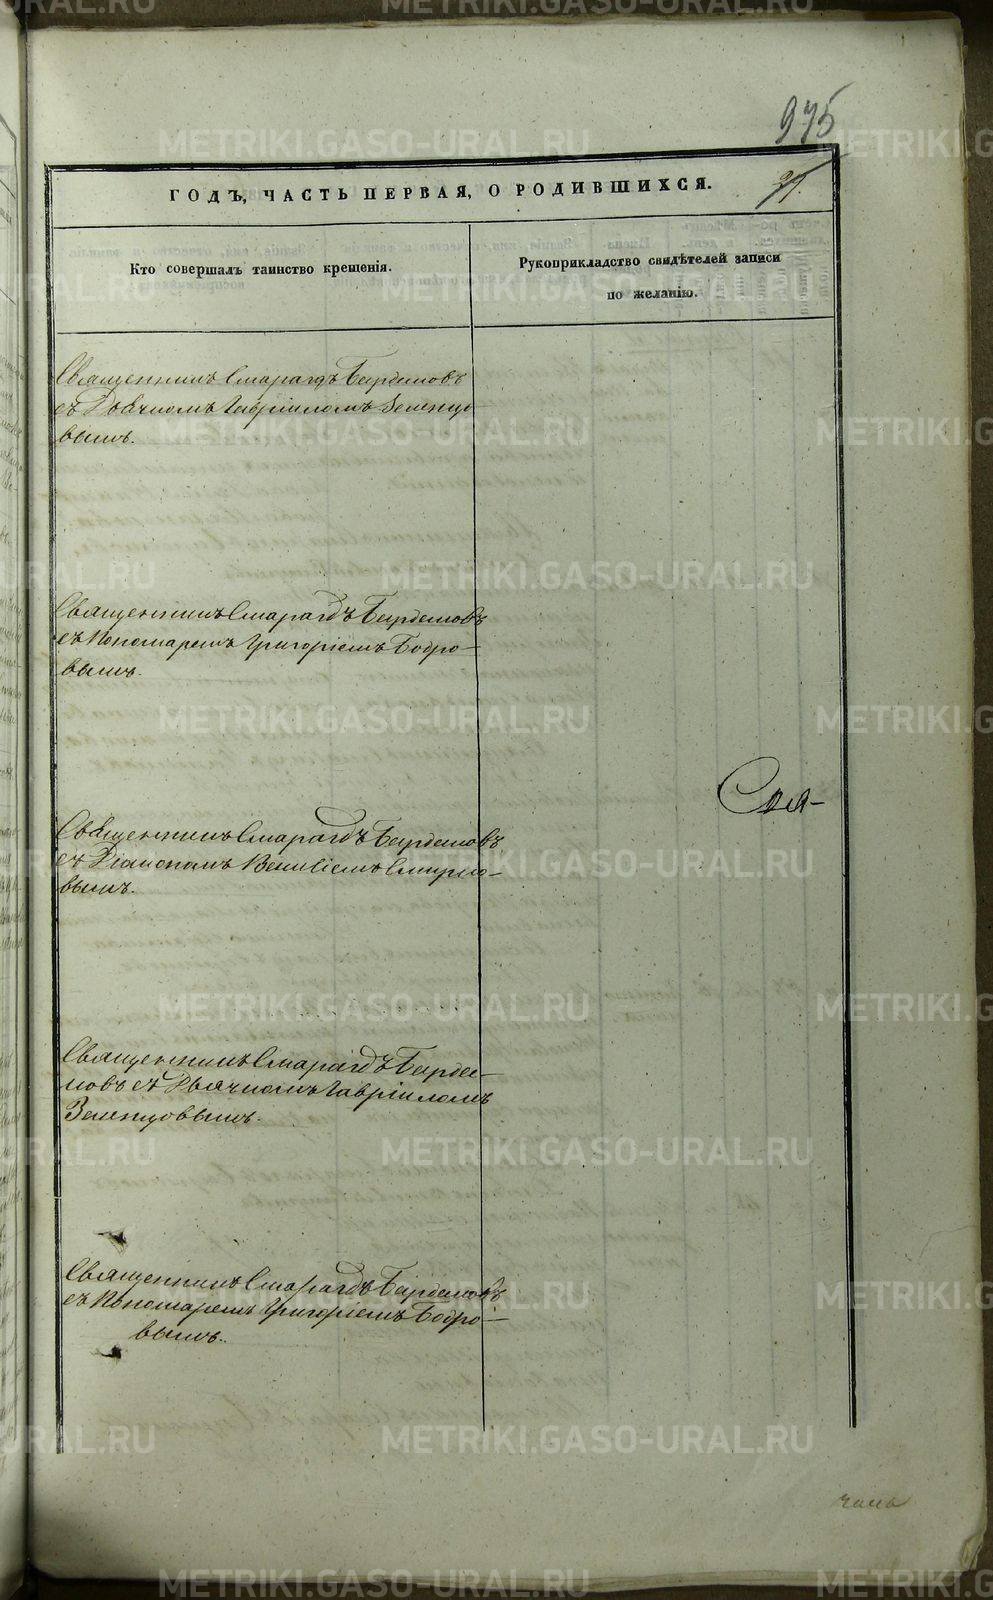 975
ГОДЪ, ЧАСТЬ ПЕРВАЯ, О РОДИВШИХСЯ.
Кто совершалъ таинство крещенія.
Рукоприкладство свидѣтелей записи
по желанію.
Священникъ Смарагдъ Бурдуковъ
съ Дьячкомъ Гавріиломъ Зеленцо
вымъ.
Священникъ Смарагдъ Бурдуковъ
съ Пономаремъ Григоріемъ Бобро-
вымъ.
Священникъ Смарагдъ Бурдуковъ
съ Діакономъ Смирно-
вымъ.
Священникъ Смарагдъ Бурду-
ковъ съ Дьячкомъ Гавріиломъ
Зеленцовымъ.
Священникъ Смарагдъ Бурдуковъ
съ Пономаремъ Григоріемъ Бобро-
вымъ.
METRIKI.GASO-URAL.RU